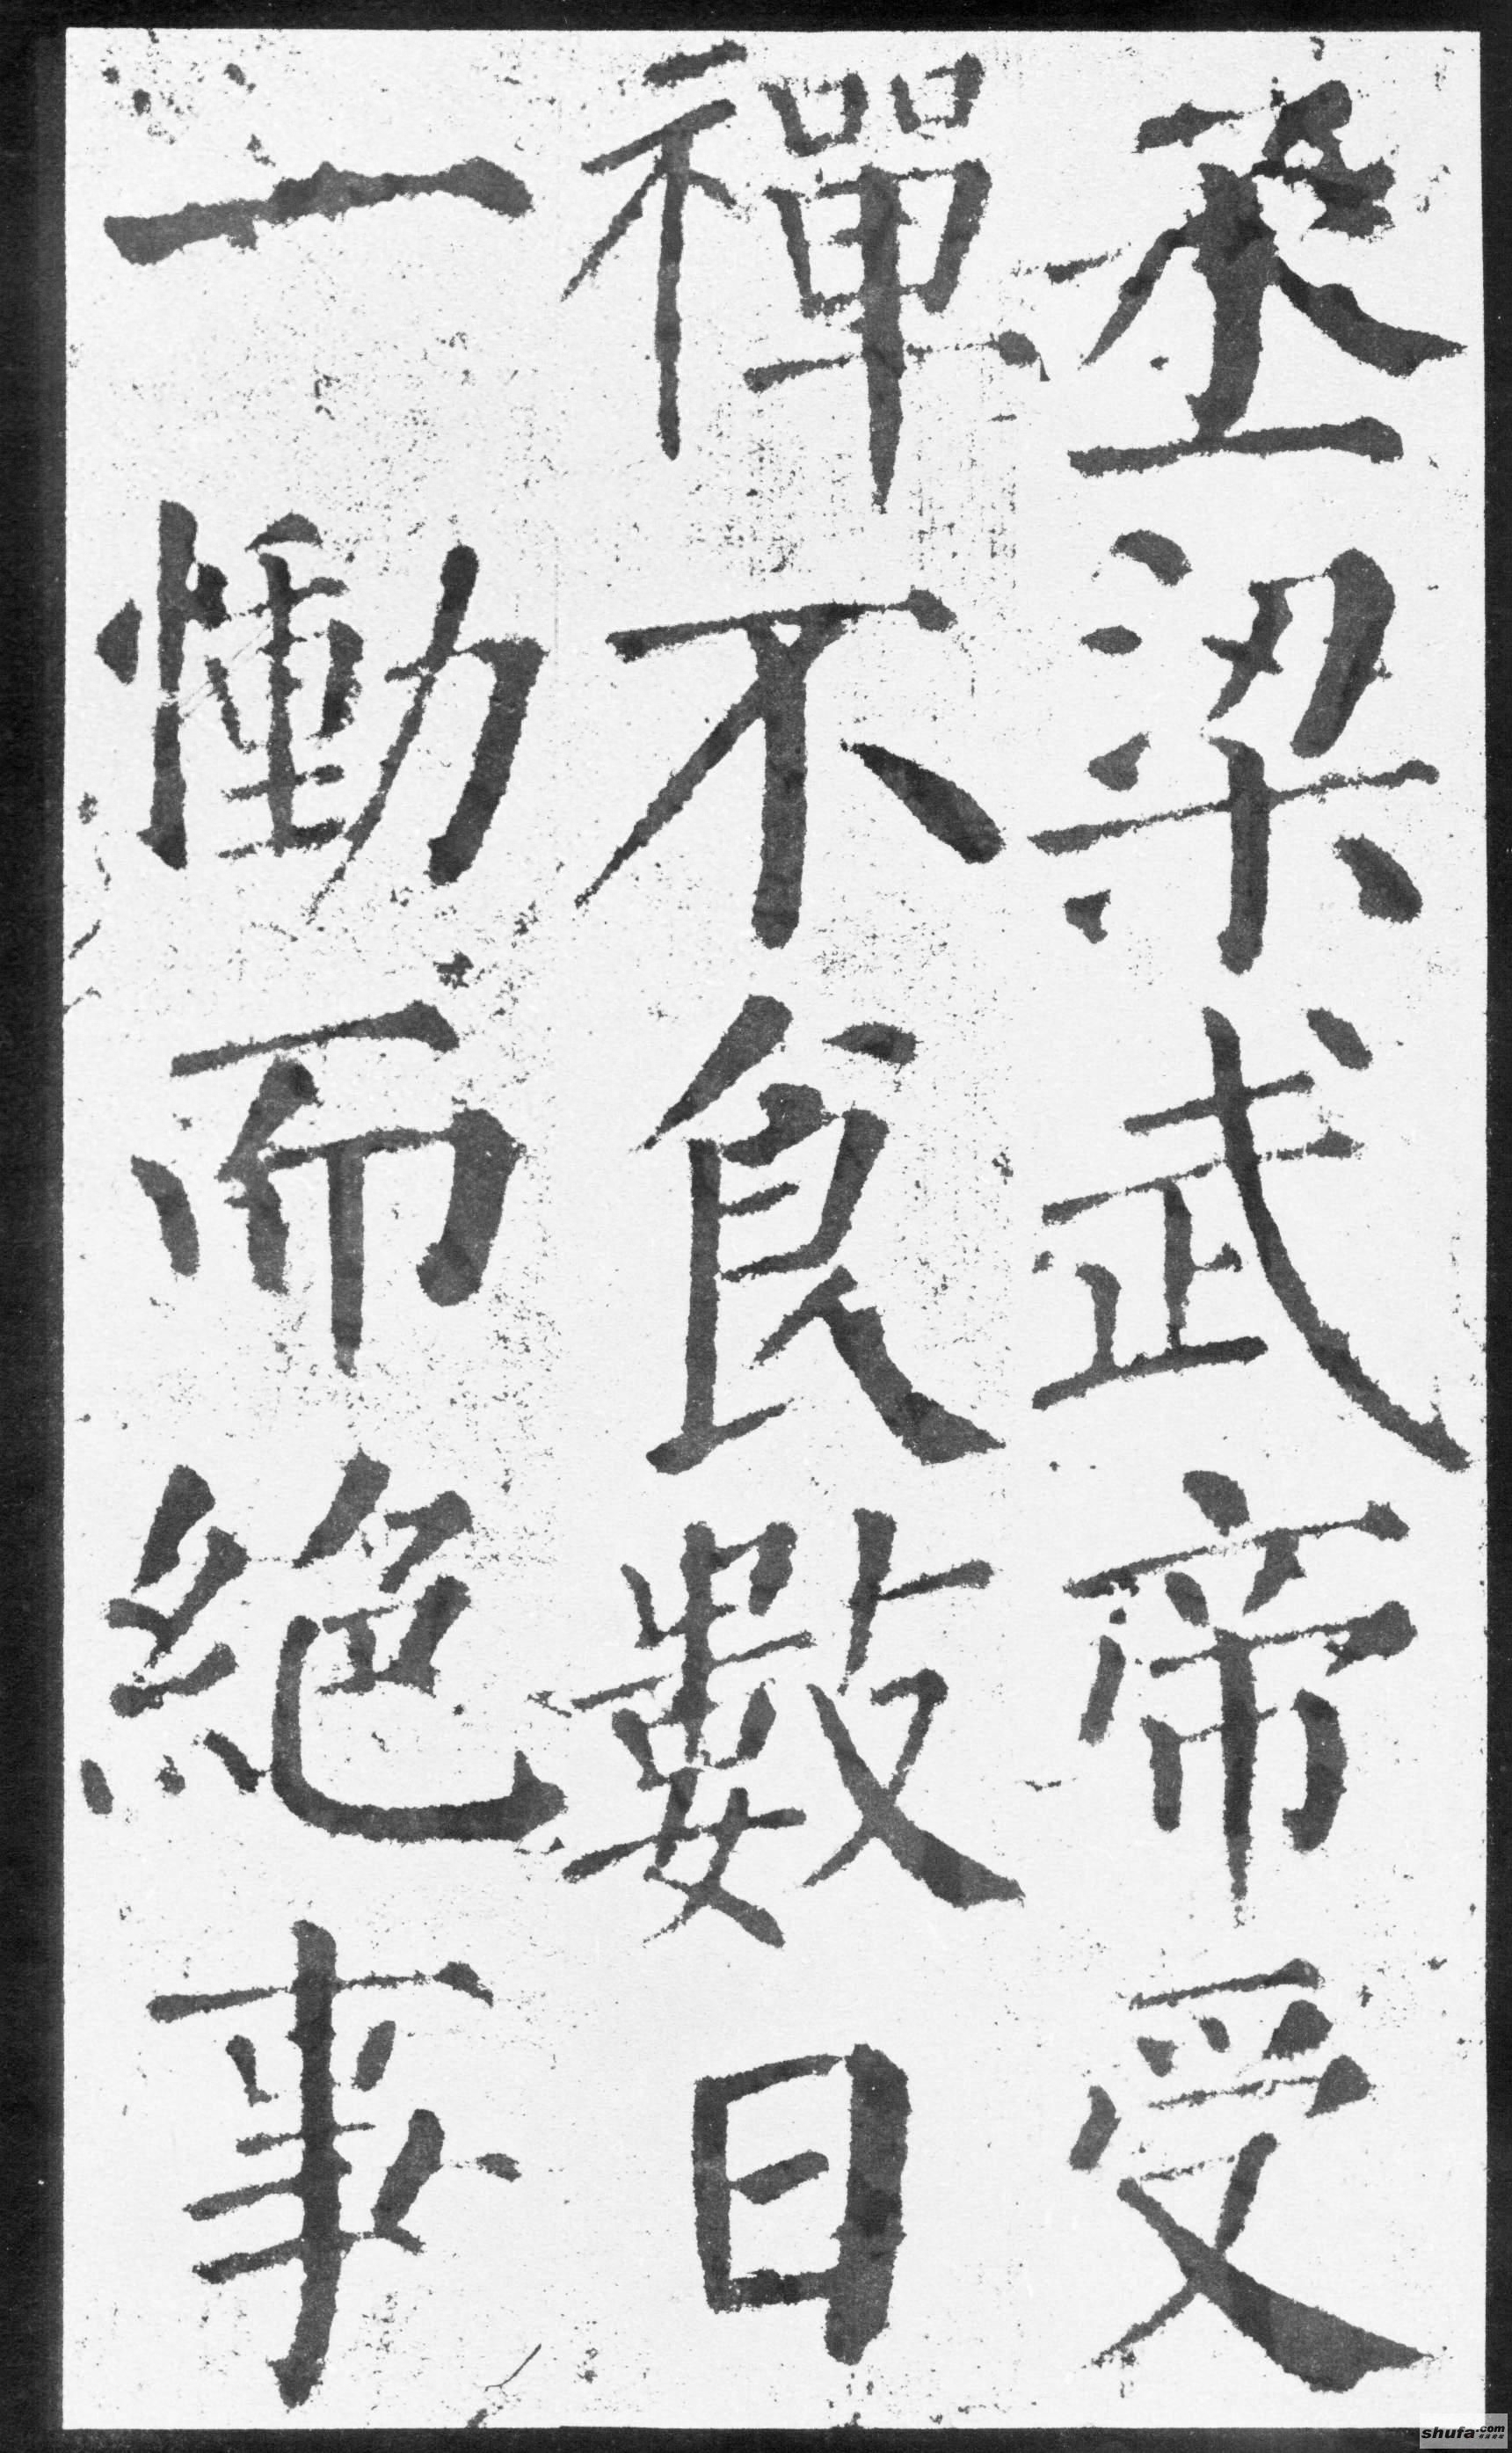 丞梁武帝受
禪不食數日
一慟而絕事
shufa.com